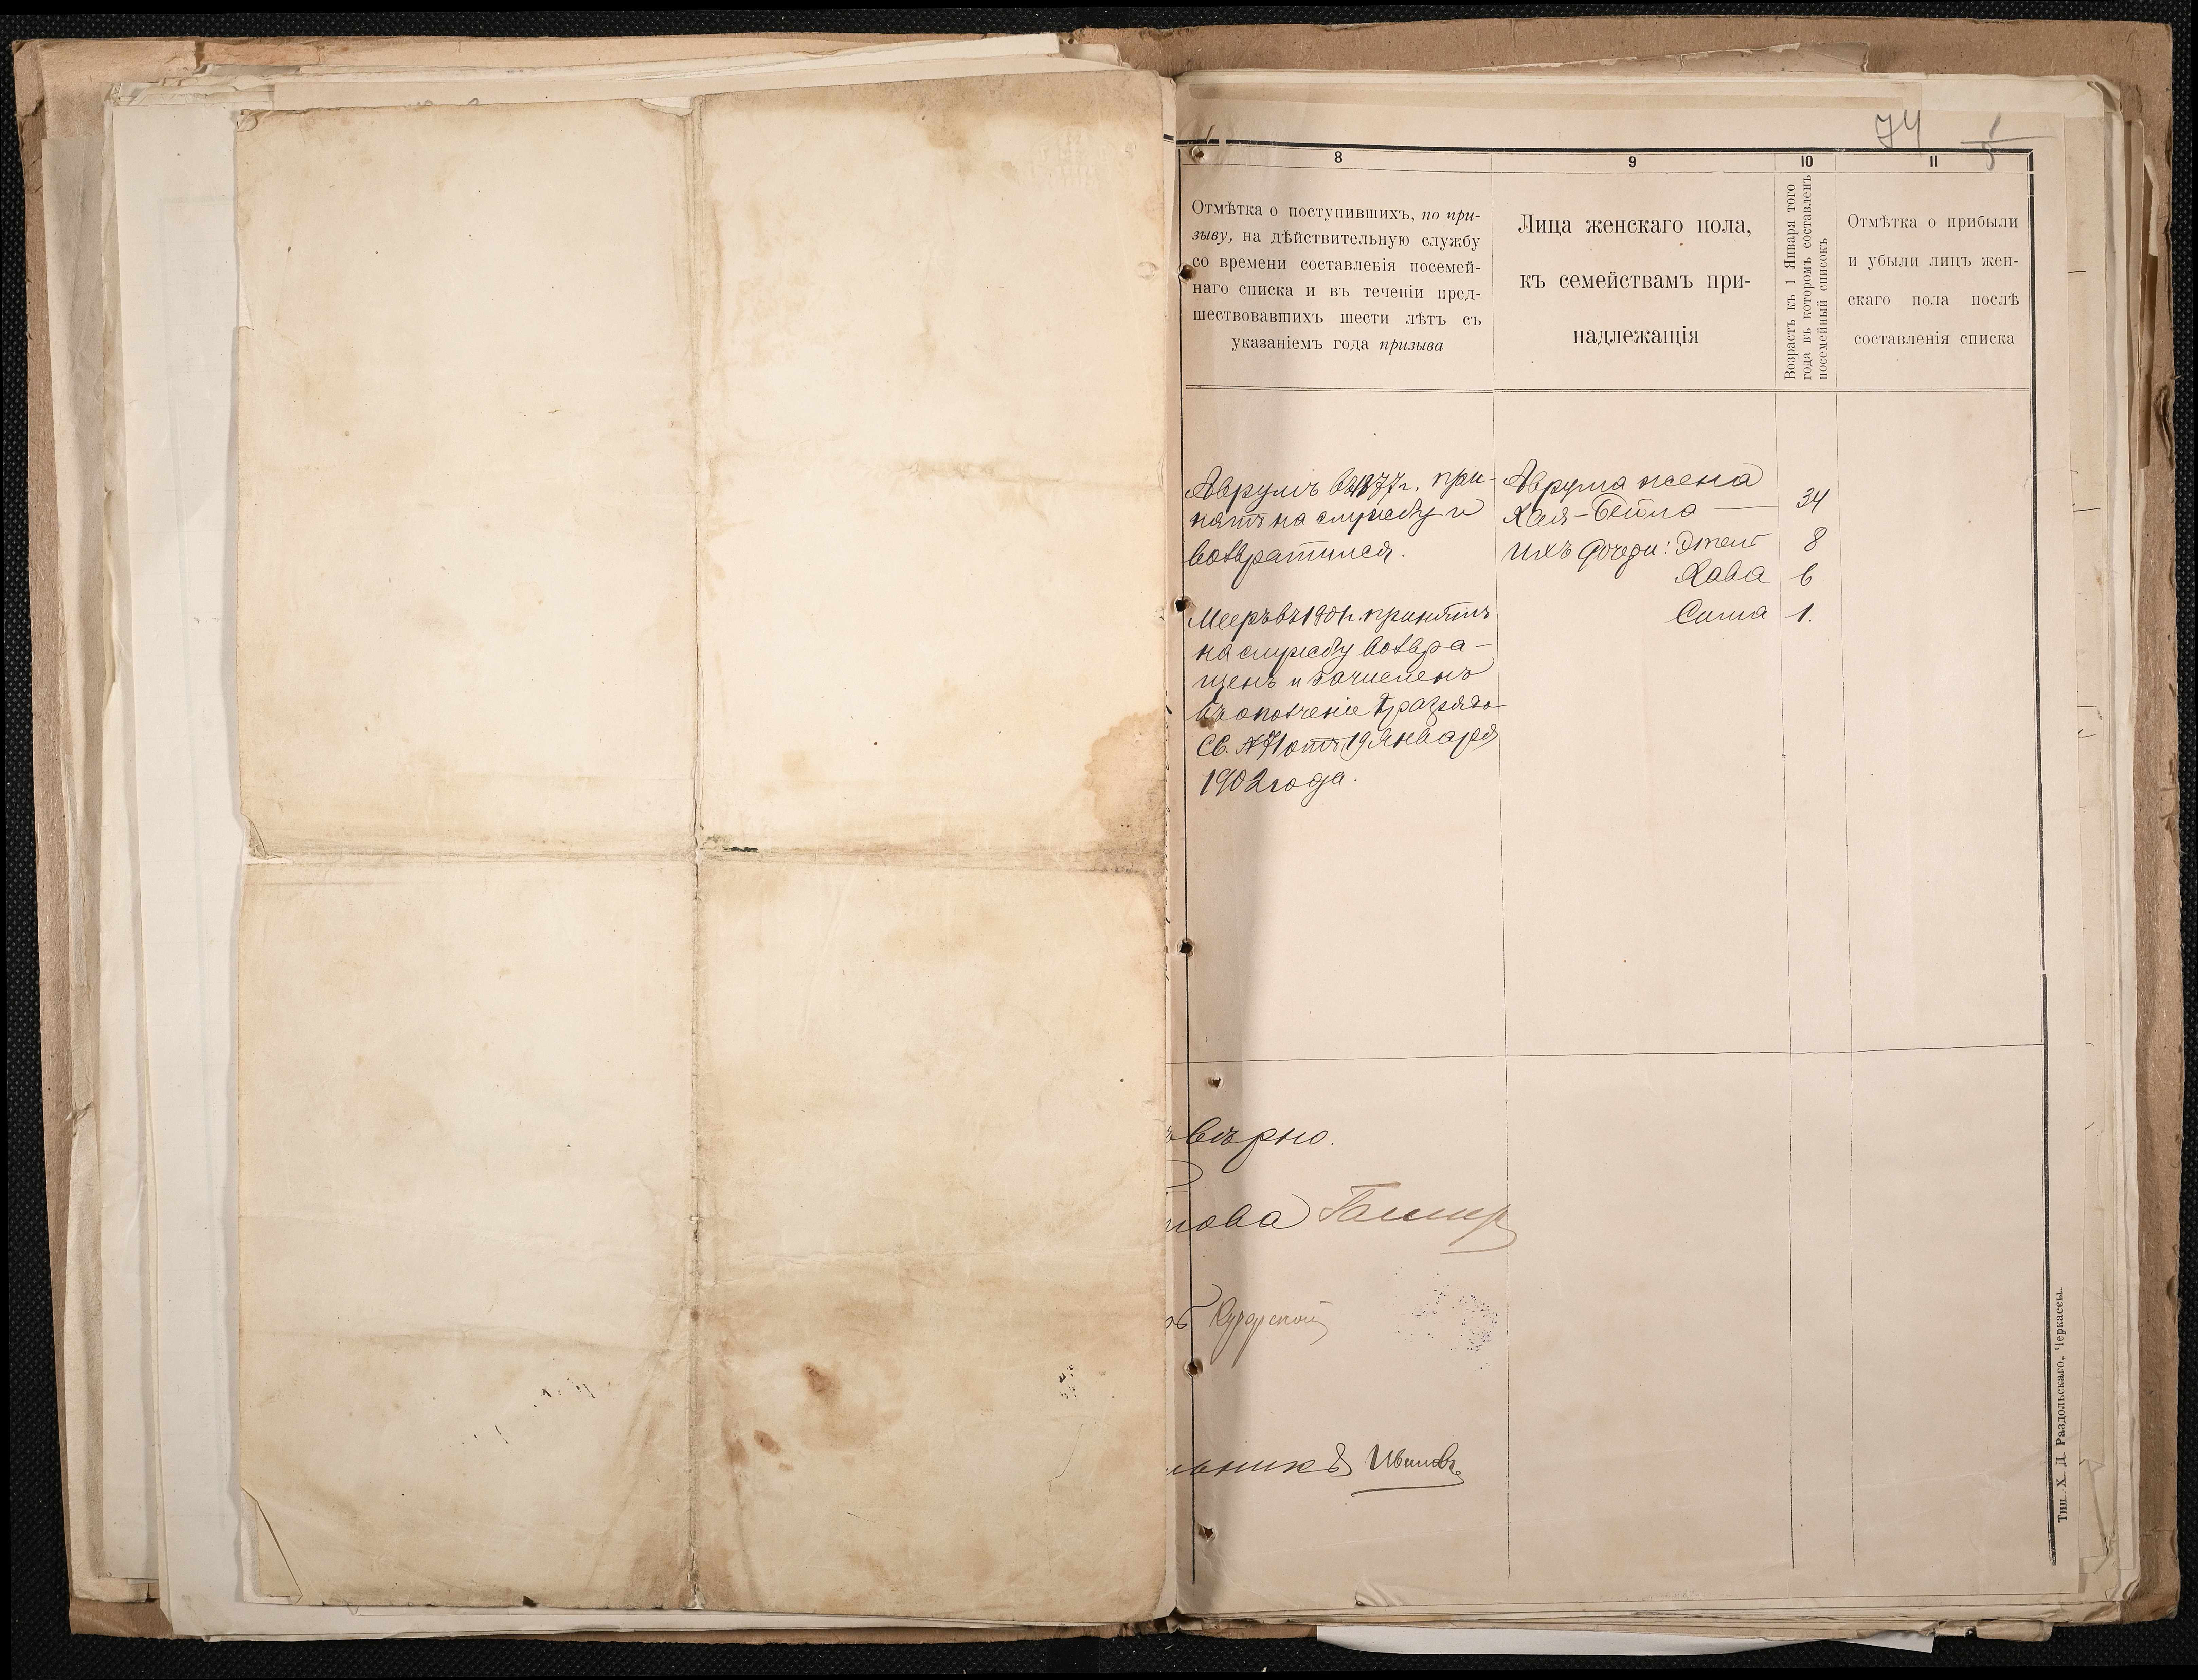 74
8
9
10
11
Отмѣтка о поступившихъ, по при-
зыву, на дѣйствительную службу
со времени составленія посемей-
наго списка и въ теченіи пред-
шествовавшихъ шести лѣтъ съ
указаніемъ года призыва
Лица женскаго пола,
къ семействамъ при-
надлежащія
Возрастъ къ 1 Января того
года въ которомъ составленъ
посемейный списокъ
Отмѣтка о прибыли
и убыли лицъ жен-
скаго пола послѣ
составленія списка
Аврумъ въ 1877 г. при-
нятъ на службу и
возвратился.
Мееръ въ 1901 г. принятъ
на службу возвра-
щенъ и зачисленъ
въ ополченіе разряда
Св. № 71 отъ 19 Января
1902 года.
Аврума жена
Хая-Бейла — 34
Ихъ дочери: Этель 8
Хава 6
Сима 1.
вѣрно.
нова
льникъ Ивановъ
Тип. Х. Д. Раздольскаго, Черкассы.